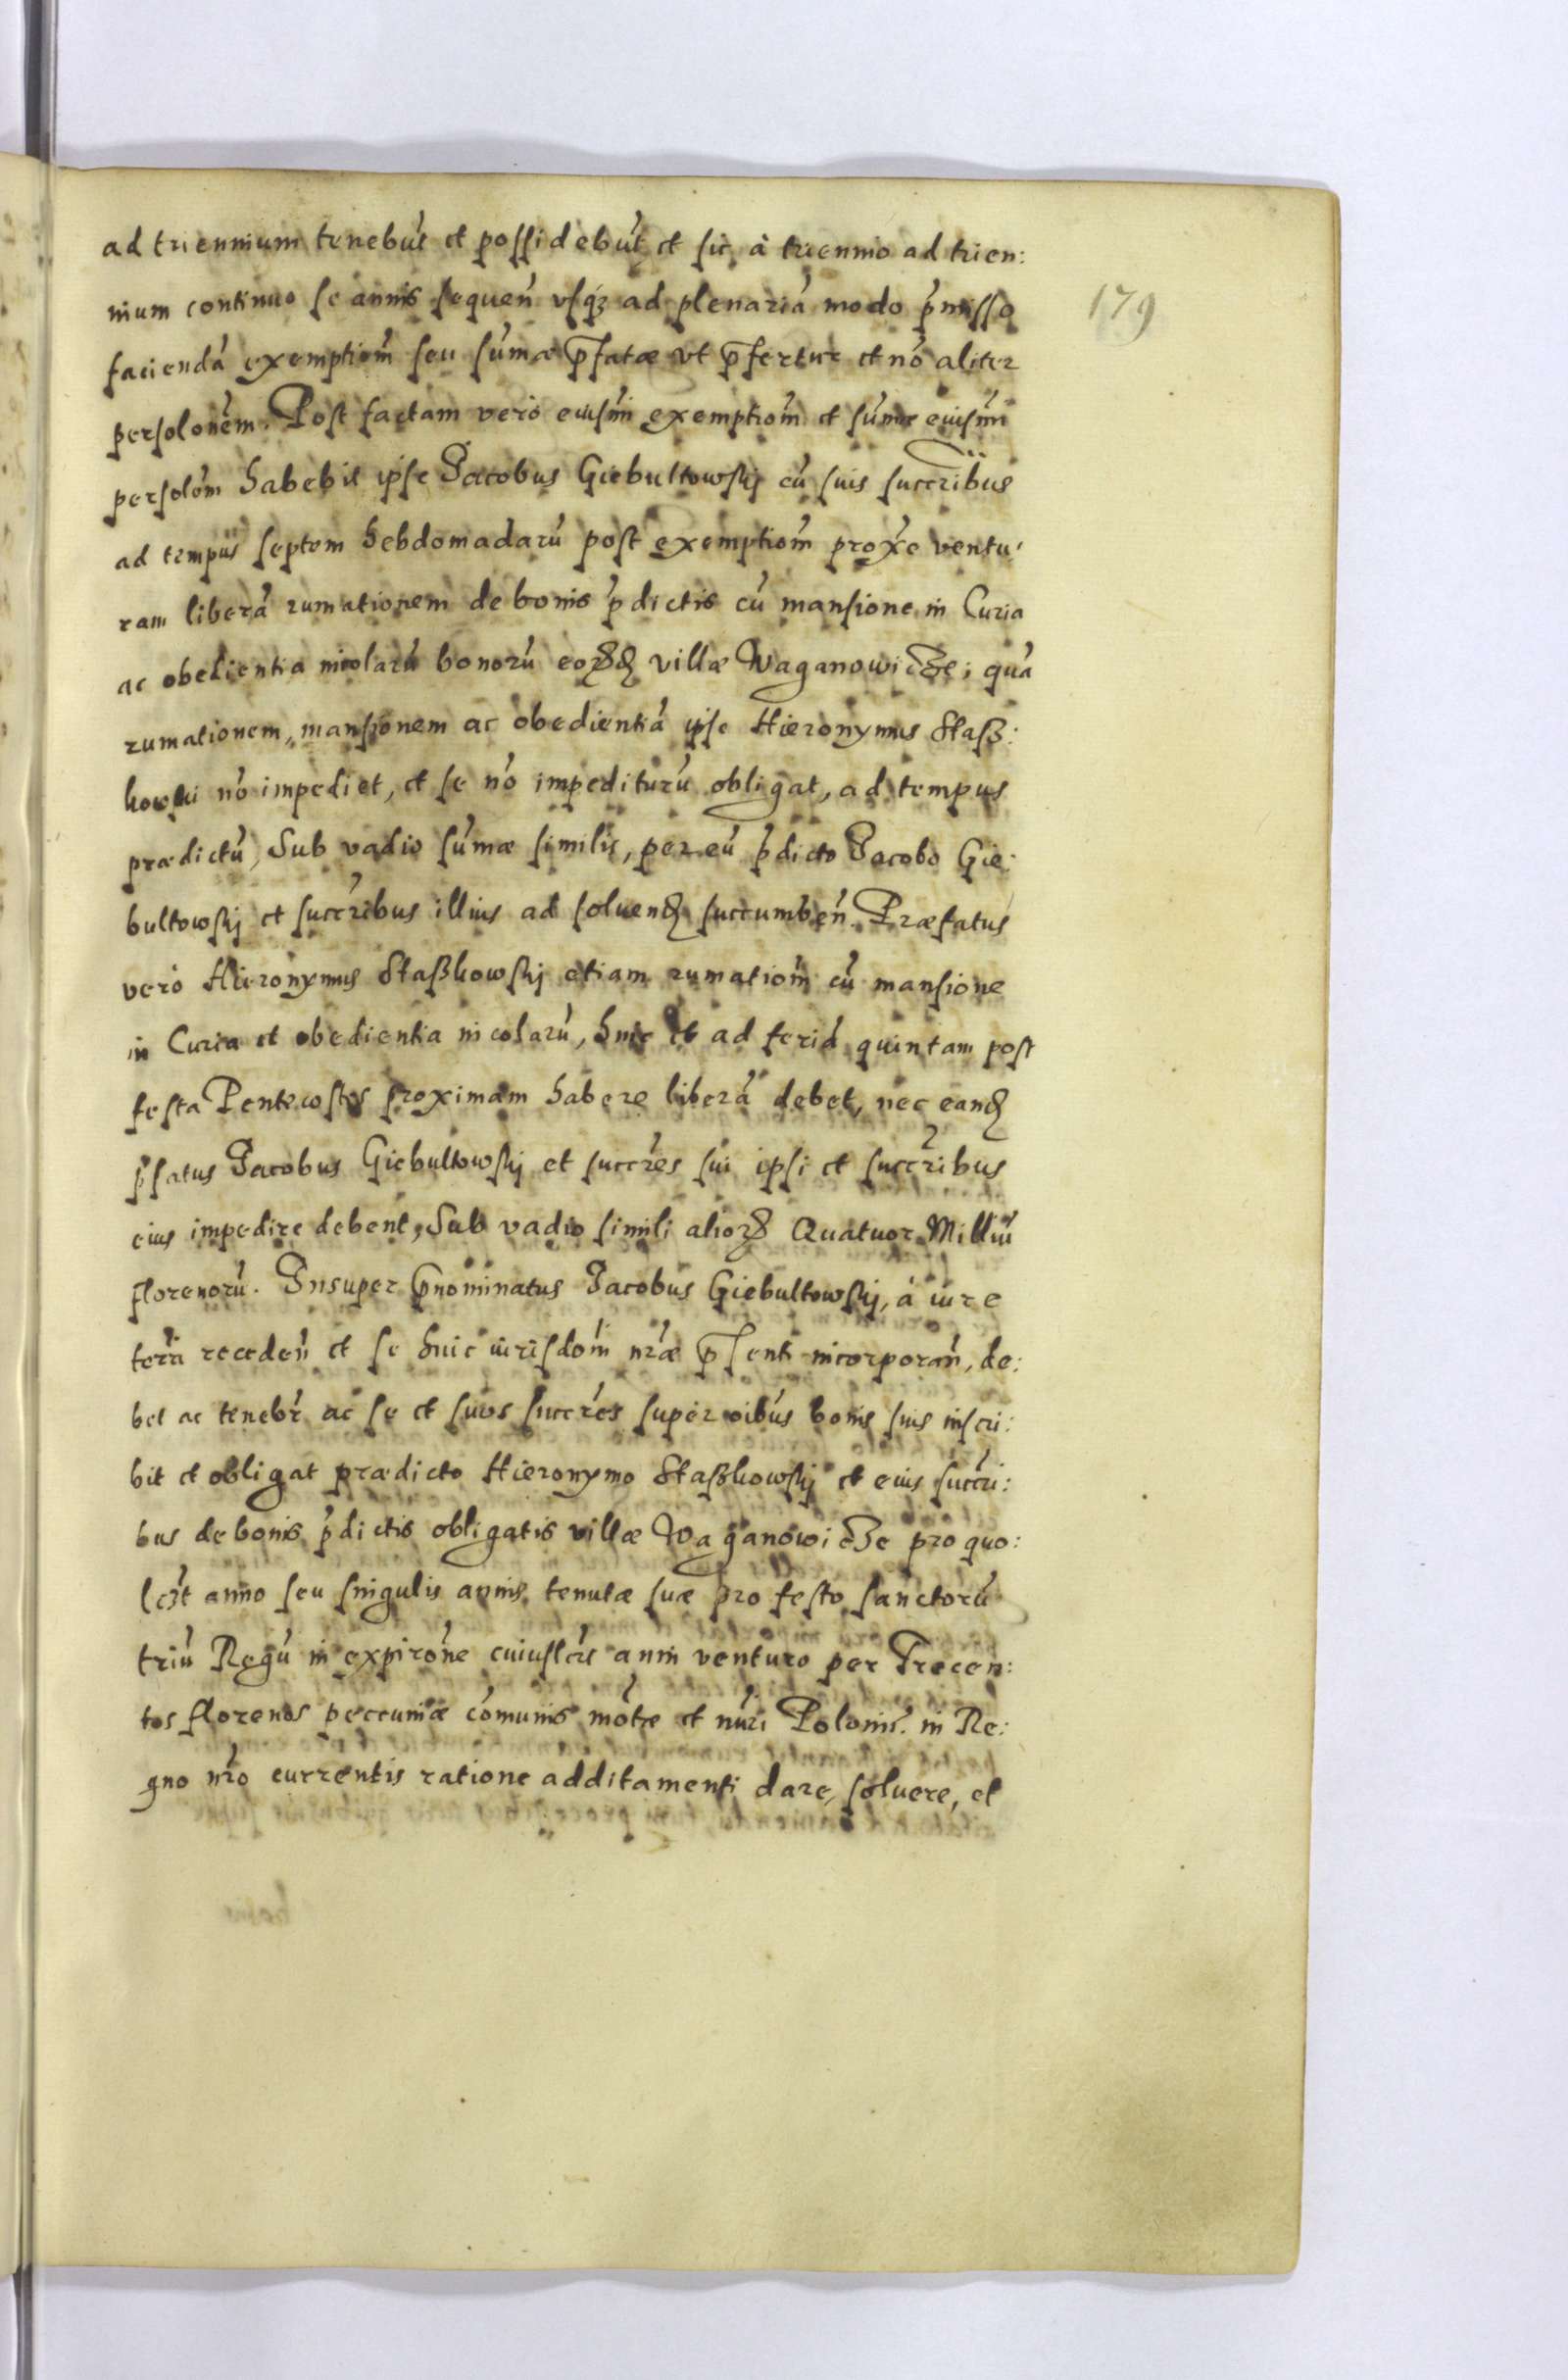 ad triennium tenebūt et possidebūt et sic à triennio ad trien:
nium continuo se annis sequen̄ vsq́ ad plenariā modo p̄misso
faciendā exemptiōm seu sūmæ p̄fatæ vt p̄fertur et nō aliter
persolōnem. Post factam verò eiusm̄i exemptiōm et sūmæ eiusm̄i
persolōm habebit ipse Jacobus Giebultowskj cū suis succr̄ibus
ad tempus septem hebdomadarū post exemptiōm prox̄e ventu:
ram liberā rumationem de bonis p̄dictis cū mansione in Curia
ac obedientia incolarū bonorū villæ Waganowicze; quā
rumationem, mansionem ac obedientiā ipse Hieronymus Staß:
kowski nō impediet, et se nō impediturū obligat, ad tempus
prædictū, Sub vadio sūmæ similis, per eū p̄dicto Jacobo Gie:
bultowskj et succr̄ibus illius ad soluend succumben̄. Præfatus
verò Hieronymus Staßkowskj etiam rumatiōm cū mansione
in Curia et obedientia incolarū, hinc et ad feriā quintam post
festa Pentecostes proximam habere liberā debet, nec eand
p̄fatus Jacobus Giebultowskj et succr̄es sui ipsi et succr̄ibus
eius impedire debent, Sub vadio simili alior Quatuor Milliū
florenorū. Insuper p̄nominatus Jacobus Giebultowskj, à iure
terrā receden̄ et se huic iurisdōm nr̄æ p̄senti incorporan̄, de:
bet ac tenebr̄ ac se et suos succr̄es super oībus bonis suis inscri:
bit et obligat prædicto Hieronymo Staßkowskj et eius succri:
bus de bonis p̄dictis obligatis villæ Waganowicze pro quo:
lꝫt anno seu singulis annis tenutæ suæ pro festo sanctorū
triū Regū in expirōne cuiuslꝫt anni venturo per Trecen:
tos florenos peccuniæ cōmunis mōtæ et nūri Polonis. in Re:
gno nr̄o currentis ratione additamenti dare, soluere, et
179